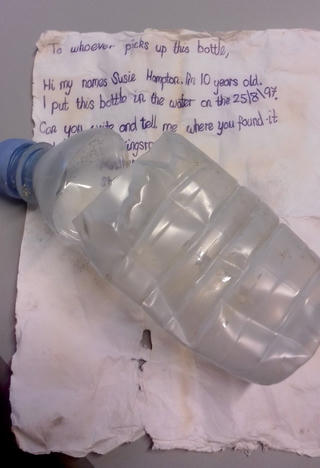 To whoever picks up this bottle,
Hi my names Susie Hampton. Im 10 years old.
I put this bottle in the water on the 25/8/97.
Can you write and tell me where you found it